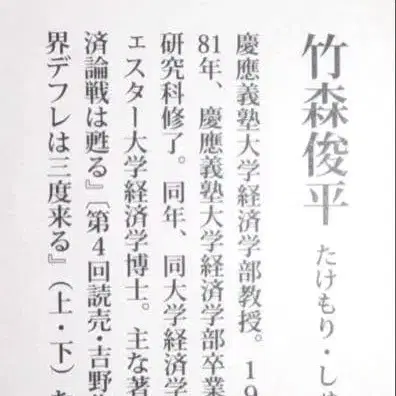 竹森俊平 たけもり・し
慶應義塾大学経済学部教授。19
81年、慶應義塾大学経済学部卒業
研究科修了。同年、同大学経済学
ェスター大学経済学博士。主な著
済論戦は甦る』〔第4回読売・吉野
界デフレは三度来る』（上・下）